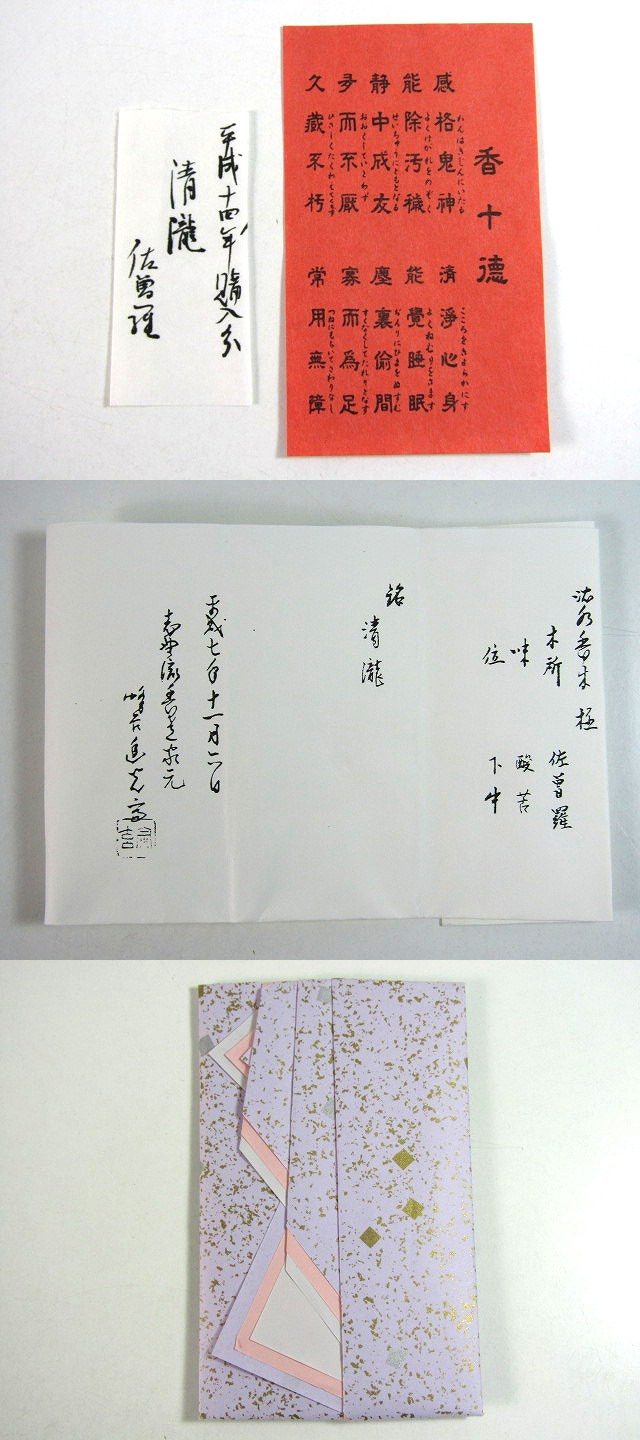 平成十四年購入分
清瀧
佐曽羅
香十德
感格鬼神 清淨心身
かんはきじんにいたる こころをきよらかにす
能除汚穢 能覺睡眠
よくけがれをのぞく よくねむりをさます
静中成友 塵裏偸間
せいちゅうにともとなる ぢんりにひまをぬすむ
多而不厭 寡而為足
おおくしていとわず すくなくしてたれりとなす
久蔵不朽 常用無障
ひさしくたくわえてくちず つねにもちいてさわりなし
香木 極
木所 佐曽羅
味 酸苦
位 下中
銘 清瀧
平成七年十一月六日
志野流香道家元
蜂谷